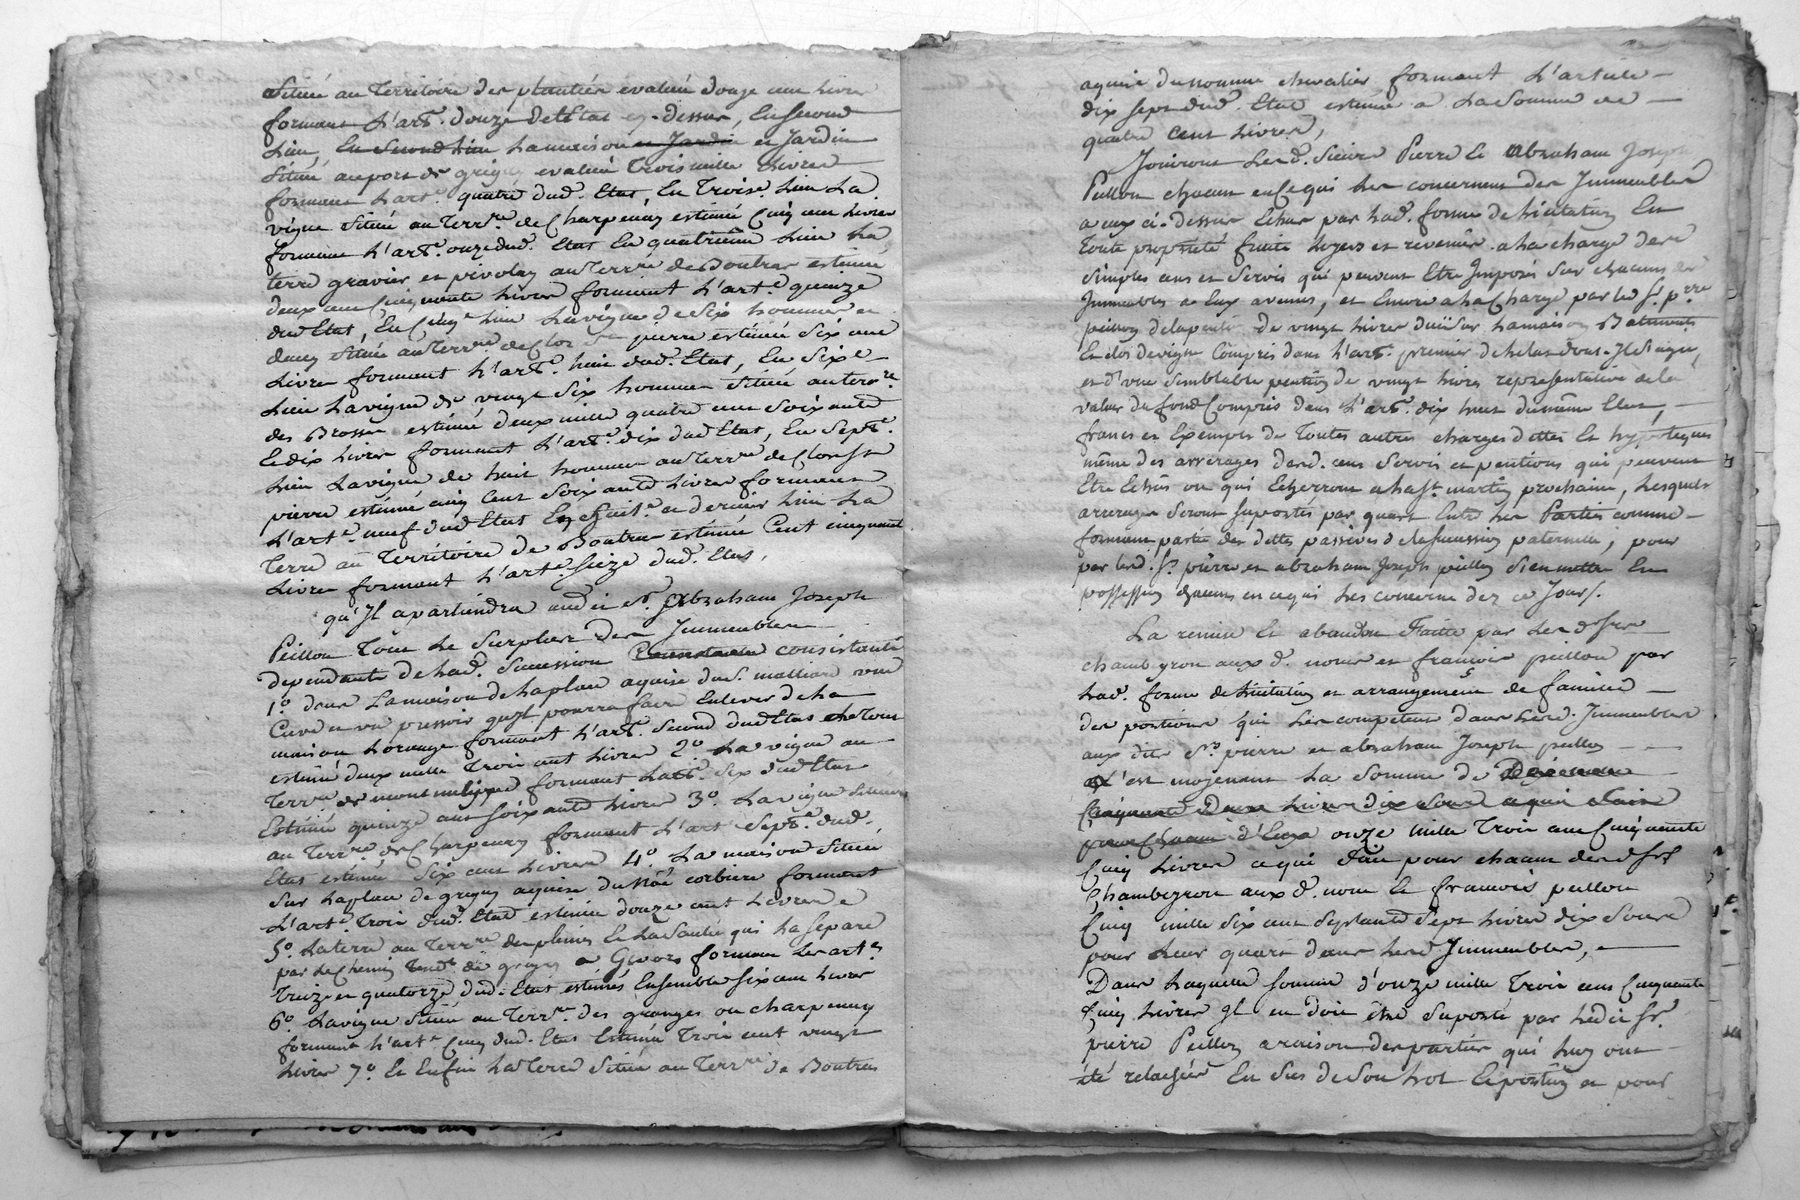 Située au Territoire des plantées evalué douze cent livres
formant L'art.e douze de Letat cy-dessus, En second
Lieu, En Second Lieu La maison et Jardin et Jardin
Située au port de grigny evalué Trois mille Livres
formant L'art.e quatre dud. Etat, En Troise. Lieu La
vigne Située au Terr.re de Charpenay estimée Cinq cent Livres
formant L'art.e onze dud. Etat En quatrieme Lieu La
terre gravier et pivolay au Terr.re de Boutras estimée
deux cent Cinquante Livres formant L'art.e quinze
dud Etat, En Cinq.e Lieu La vigne de Six hommes et
demy Située au Terr.re de Clos St pierre estimée Six cent
Livres formant L'art.e huit dud. Etat, En Six.e
Lieu La vigne de vingt Six hommes Située au terr.re
des Brosses estimée deux mille quatre cent Soixante
Et dix Livres formant L'art.e dix dud Etat, En Sept.e
Lieu La vigne de huit hommes au Terr.re de Clos St
pierre estimée cinq Cent Soixante Livres formant
L'art.e neuf dud Etat En huit.e et dernier Lieu La
Terre au Territoire de Boutras estimée Cent cinquante
Livres formant L'art.e Seize dud. Etat,
qu'Il apartiendra aud. Sr. Abraham Joseph
Peillon Tous Le Surplus des Immeubles
dependants de Lad. Sucession consistants
1.o dans La maison de La place aquise du S. malliard une
Cuve et un pressoir qu'Il pourra faire Enlever de La
maison Lorange formant L'art. Second dud Etat Le Tout
estimé deux mille Trois cent Livres 2.o La vigne au
Terr.re de mont milippe formant L'art. Six dud Etat
Estimée quinze cent soixante Livres 3.o La vigne Située
au Terr.re de Charpenay formant L'art Sept.e dud.
Etat estimée Six cent Livres 4.o La maison Située
Sur La place de grigny aquise du Né corbiere formant
L'art.e Trois dud. Etat estimée douze cent Livres
5.o La terre au Terr.re des pleines Et La Saulée qui La separe
par Le Chemin Tend.t de grigny a Givors formant Les art.s
Treize et quatorze dud. Etat estimés Ensemble six cent Livres
6.o La vigne Située au Terr.re des granges ou charpenay
formant L'art.e Cinq dud. Etat Estimée Trois cent vingt
Livres 7.o Et Enfin La Terre Située au Terr.re de Boutras
aquise du nommé chevalier formant L'article
dix sept dud. Etat estimée a La Somme de
quatre cent Livres,
Joüiront Lesd. Sieurs Pierre Et Abraham Joseph
Peillon chacun en Ce qui Les concerne des Immeubles
a eux ci-dessus Echus par Lad. forme de Licitation En
Toute proprieté fruits Loyers et revenus a La charge des
Simples cens et Servis qui peuvent Etre Imposés Sur chacuns des
Immeubles a Eux avenus, et Encore a La Charge par Led Sr. p.rre
peillon de la pention de vingt Livres düe Sur La maison Batiments
Et clos de vigne Compris dans L'art. premier de Letat dont Il Sagit,
et d'une Semblable pention de vingt Livres representative de la
valeur du fond Compris dans L'art. dix huit du même Etat,
francs et Exempts de Toutes autres charges dettes Et hypoteques
même des arrerages desd. cens Servis et pentions qui peuvent
Etre Echus ou qui Echerront a La St martin prochaine, Lesquels
arrerages Seront Suportés par quart Entre Les Parties comme
formant partie des dettes passives de la sucession paternelle, pour
par Lesd. Srs. pierre et abraham Joseph peillon Se en mettre En
possession chacuns en ce qui Les concerne dez ce Jour.
La remise Et abandon Faitte par Les d Srs
chambeyron aux d. noms et francois peillon par
Lad. forme de Licitation et arrangement de famille
des portions qui Les competent dans Lesd. Immeubles
aux dits Srs pierre et abraham Joseph peillon
C'est moyenant La Somme de
Cinquante Deux Livres dix Sous ce qui fait
pour Chacun d'Eux onze mille Trois cent Cinquante
Cinq Livres ce qui Fait pour chacun des d Srs
Chambeyron aux d. nom Et francois peillon
Cinq mille six cent Septante Sept Livres dix Sous
pour Leur quart dans Lesd Immeubles,
Dans Laquelle Somme d'onze mille Trois cens Cinquante
Cinq Livres Il en doit être Suporté par Ledit Sr.
pierre Peillon a raison des parties qui Luy ont
été relachées En Sus de Son Lot Et portion et pour